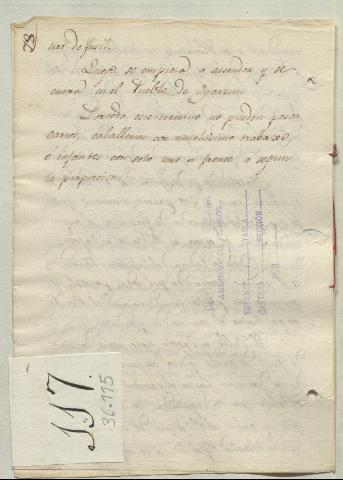 28
tiro de fusil.
Luego se empieza a ascender y se
entra en el Pueblo de Oyarzun
Por todo ese camino no pueden pasar
carros, caballerias con muchisimo trabajo,
e infantes con solo uno de frente o segun
la proporcion.
ARCHIVO DE PLANOS
ESTANTE TABLA
CARTETA SECCIÓN
117.
36-115